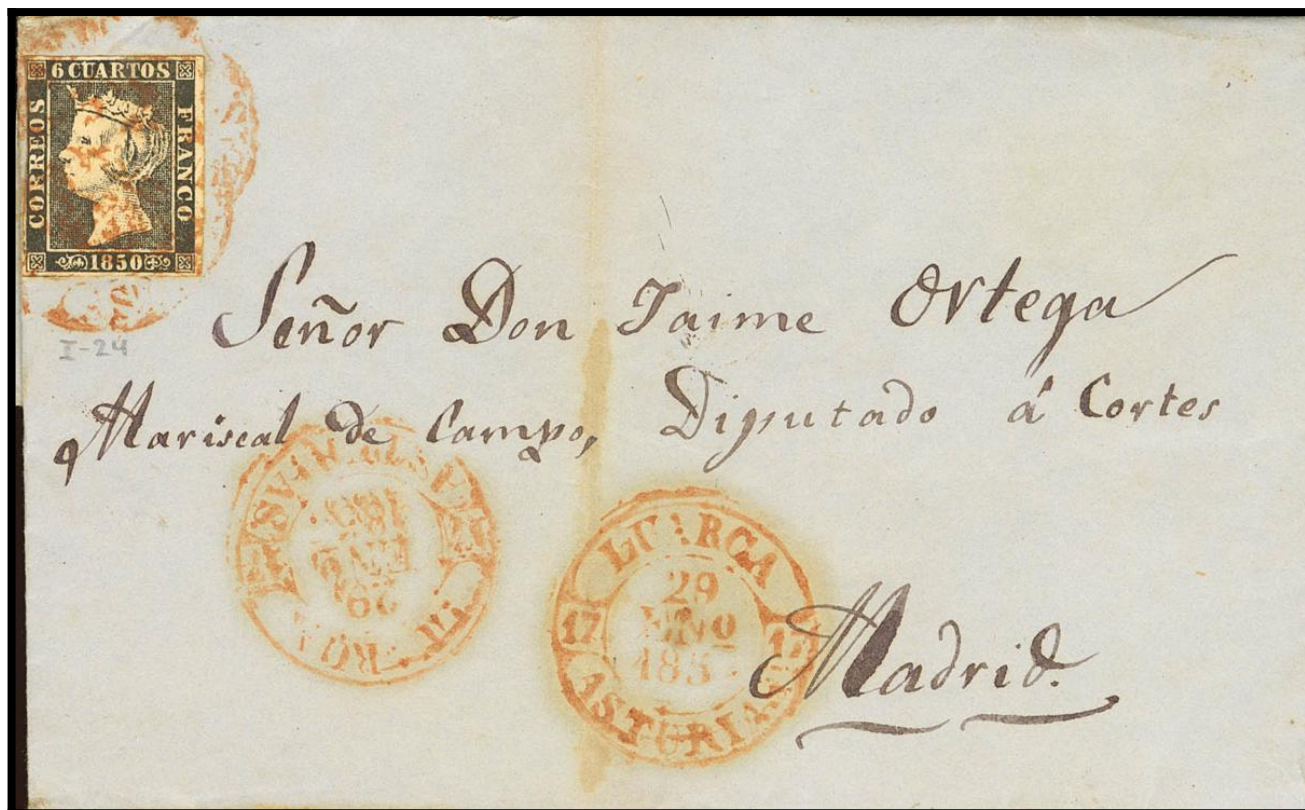 6 CUARTOS
CORREOS
FRANCO
1850
I-24
Señor Don Jaime Ortega
Mariscal de Campo, Diputado á Cortes
Madrid.
LUARCA
29
17 17
ASTURIAS